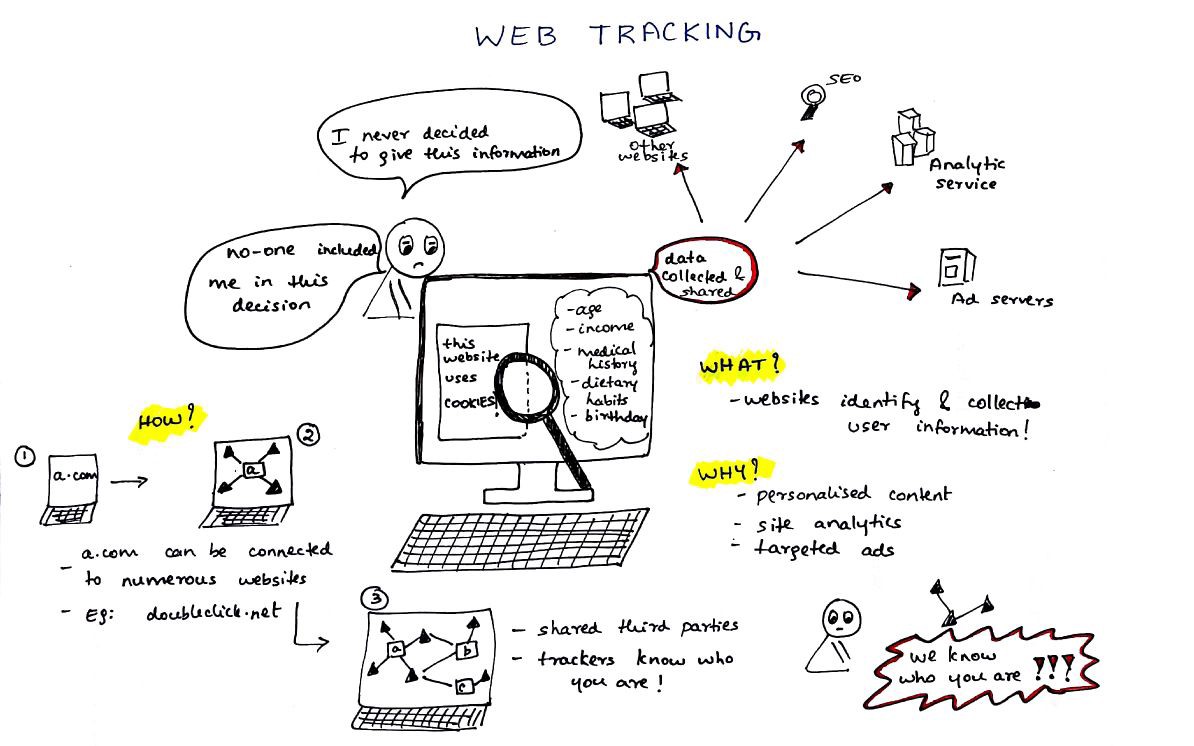 WEB TRACKING
I never decided
to give this information
no-one included
me in this
decision
other
websites
SEO
Analytic
service
Ad servers
data
collected &
shared
this
website
uses
COOKIES!
-age
-income
- medical
history
-dietary
habits
- birthday
WHAT?
-websites identify & collect
user information!
WHY?
- personalised content
- site analytics
- targeted ads
HOW?
1
a.com
2
a
- a.com can be connected
to numerous websites
- Eg: doubleclick.net
3
a
b
c
- shared third parties
- trackers know who
you are!
we know
who you are !!!